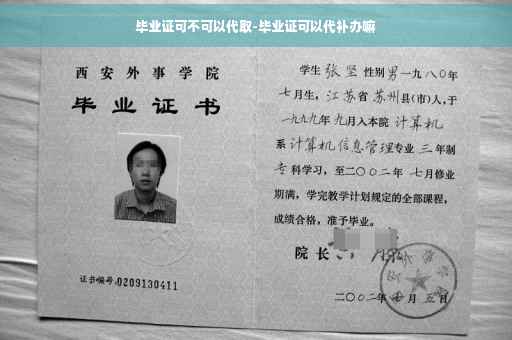 毕业证可不可以代取-毕业证可以代补办嘛
西安外事学院
毕业证书
证书编号:0209130411
学生 张坚 性别 男 一九八〇年
七月生，江苏省 苏州县(市)人，于
一九九九年 九月入本院 计算机
系 计算机信息管理专业 三 年制
专科学习，至二〇〇二年 七月修业
期满，学完教学计划规定的全部课程，
成绩合格，准予毕业。
院长
二〇〇二年 七 月 五 日